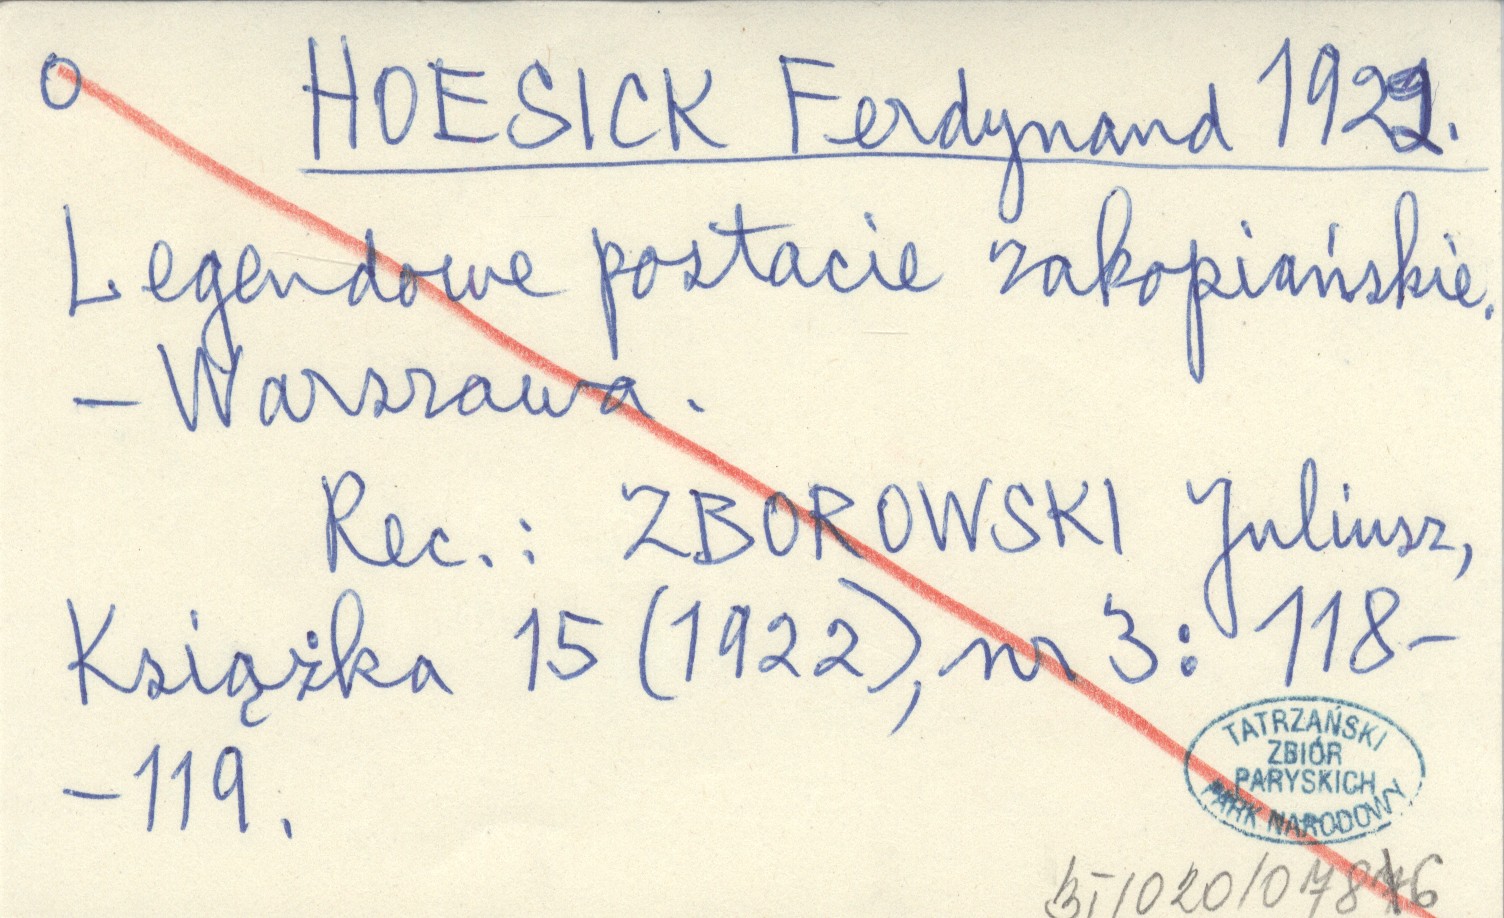 O HOESICK Ferdynand
Legendowe postacie zakopiańskie.
– Warszawa.
Rec.: ZBOROWSKI Juliusz,
Książka 15 (1922), nr 3: 118–
–119.
TATRZAŃSKI
ZBIÓR
PARYSKICH
PARK NARODOWY